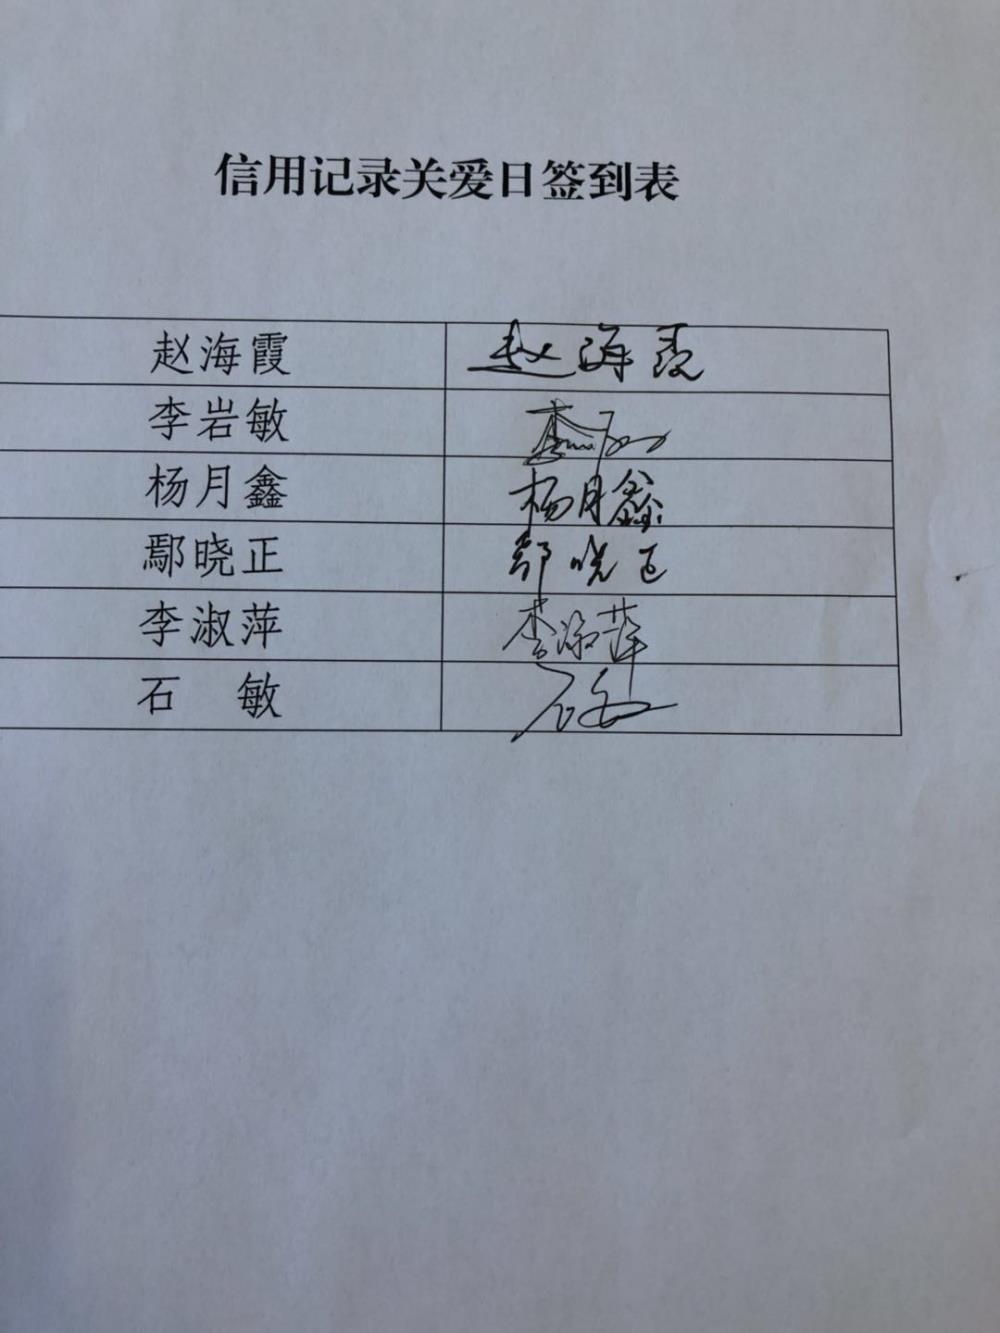 信用记录关爱日签到表
赵海霞 赵海霞
李岩敏 李
杨月鑫 杨月鑫
鄢晓正 鄢晓正
李淑萍 李淑萍
石 敏 石敏